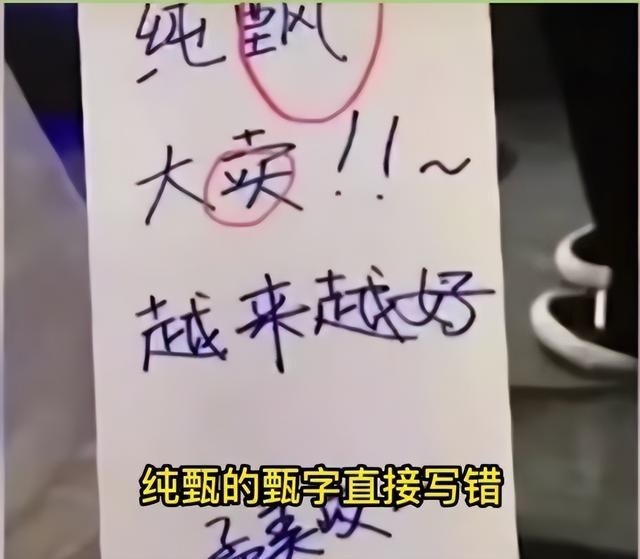 纯甄
大卖!!~
越来越好
纯甄的甄字直接写错